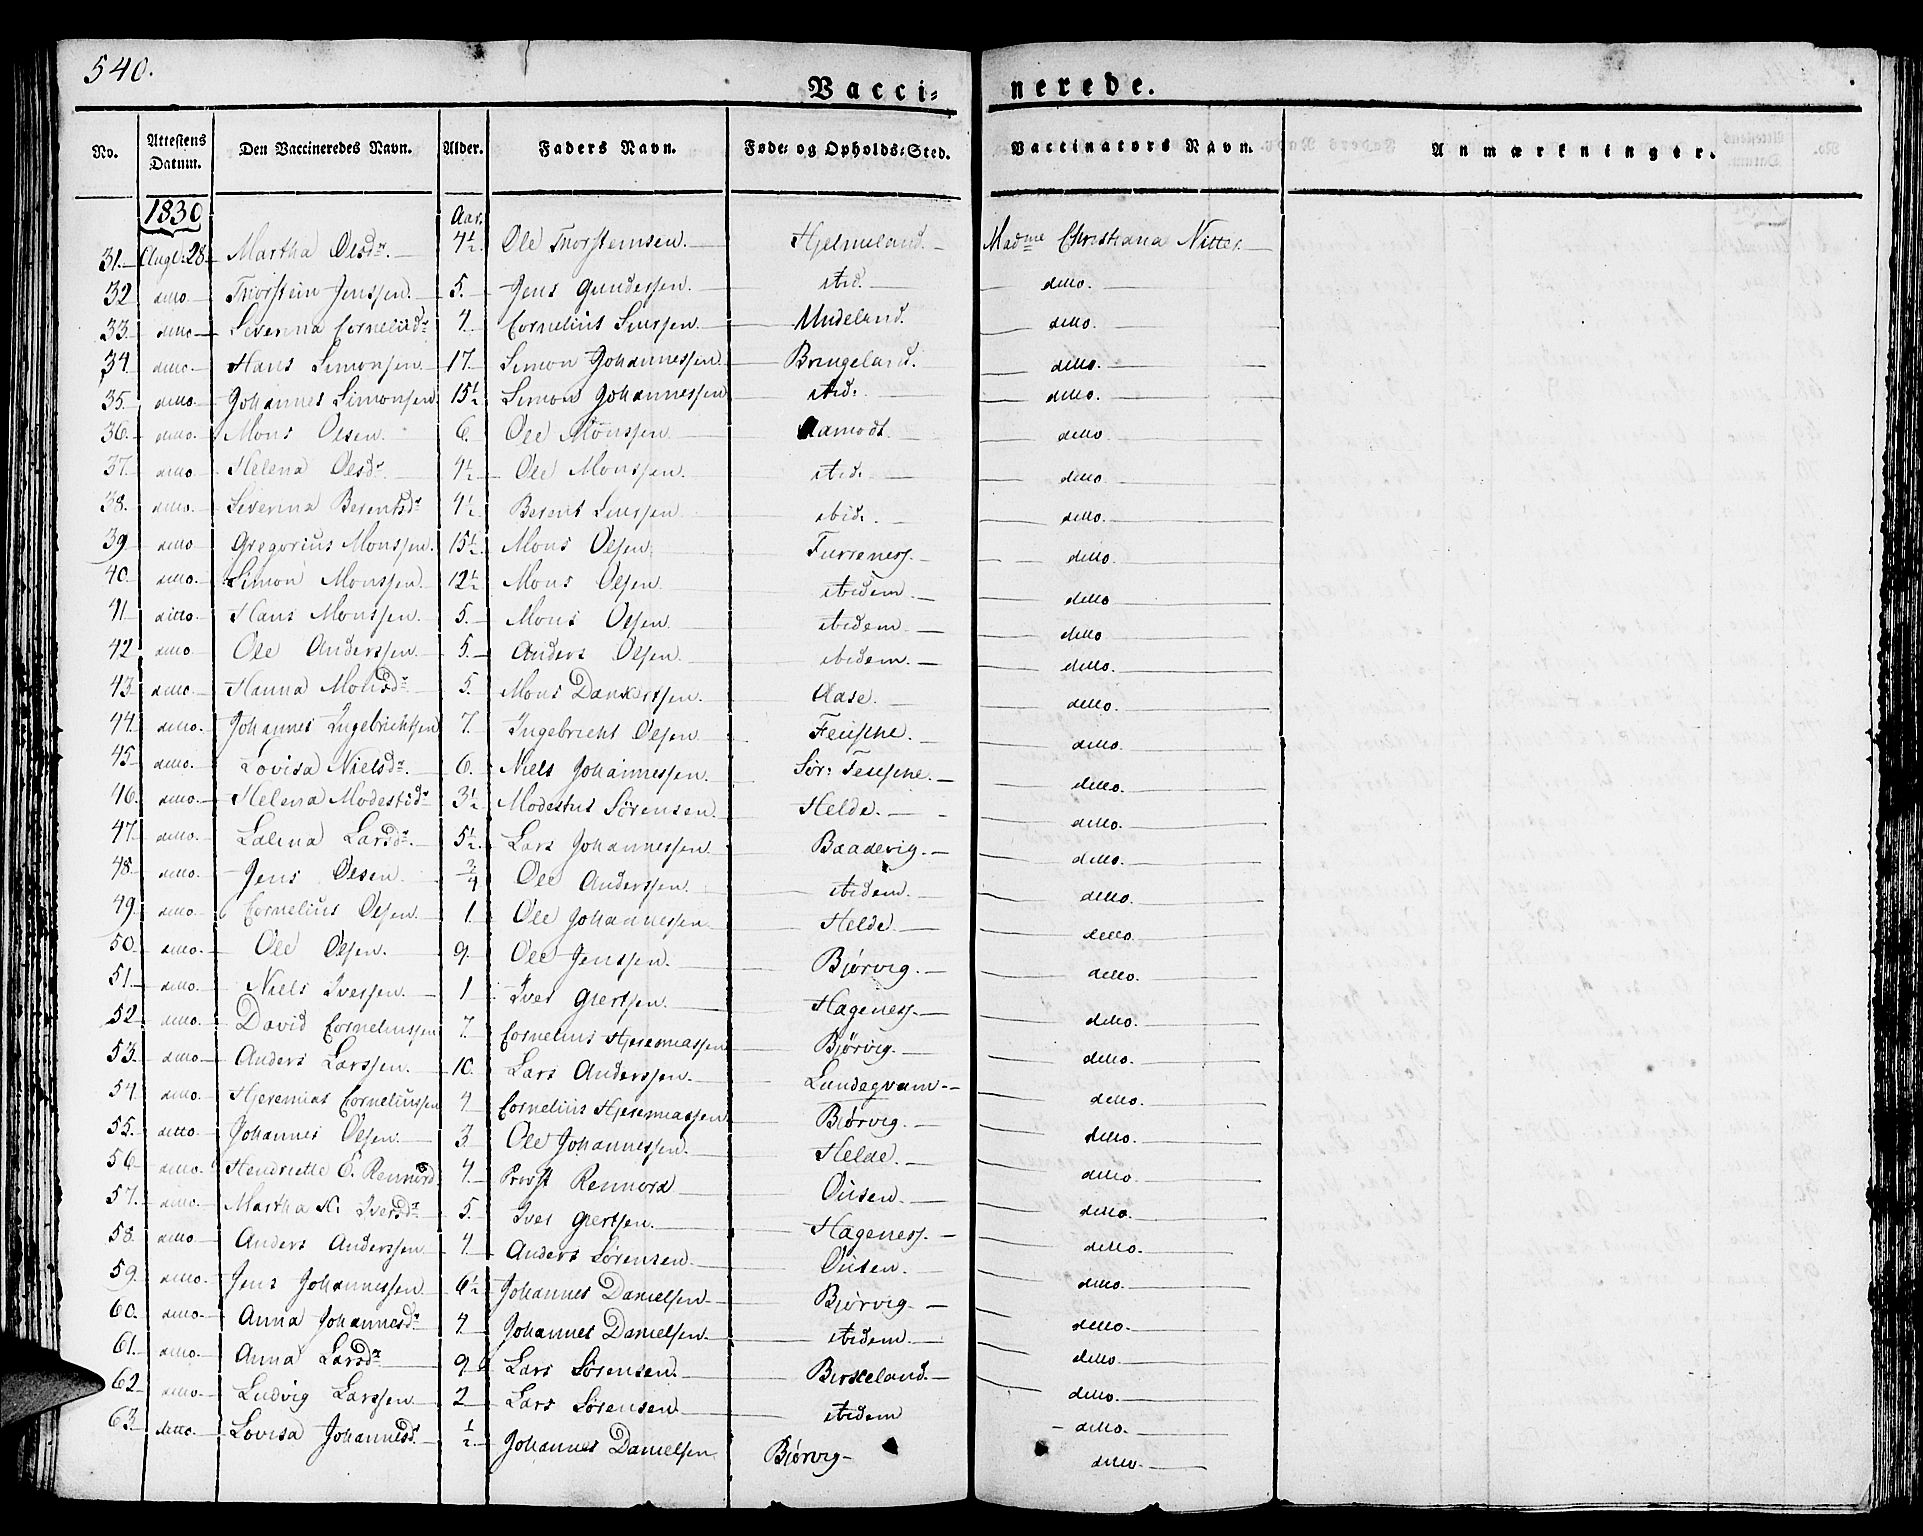 540.
Vacci= nerede.
No. Attestens Datum. Den Vaccineredes Navn. Alder. Faders Navn. Føde= og Opholds=Sted. Vaccinators Navn. Anmærkninger.
1830 Aar.
31. Augt. 28. Martha Olsdr. 4½. Ole Thorstensen. Hjelmeland. Madme Christiana Nitter
32 ditto Thorstein Jenssen. 5. Jens Gundersen. ibid. ditto.
33. ditto Severina Corneliidr 4. Cornelius ditto.
34. ditto Hans Simonsen 17. Simon Johannessen Bringeland. ditto.
35. ditto. Johannes Simonsen 15½. Simon Johannessen ibid. ditto.
36. ditto. Mons Olsen. 6. Ole Monssen Aamodt. ditto
37. ditto Helena Olsdr. 4½. Ole Monssen. ibid. ditto.
38. ditto. Severina Berentsdr 4½. Berent ibid. ditto.
39 ditto Gregorius Monssen. 15½. Mons Olsen. Furreness. ditto.
40. ditto. Simon Monssen. 12½. Mons Olsen ibidem. ditto
41 ditto. Hans Monssen. 5. Mons Olsen. ibidem. ditto
42 ditto Ole Anderssen. 5. Anders Olsen. ibidem. ditto.
43. ditto Hanna Monsdr. 5. Mons Dankertssen. Aase. ditto.
44. ditto. Johannes Ingebrichtsen 7. Ingebricht Olsen Feusche. ditto.
45 ditto. Lovisa Nielsdr. 6. Niels Johannessen. Sör: Feusche. ditto.
46. ditto. Helena Modestidr 3½ Modestus Sörensen. Helde. ditto.
47. ditto. Larsdr. 5½. Lars Johannessen. Baadevig. ditto.
48. ditto. Jens Olsen. ¾ Ole Anderssen. ibidem. ditto.
49. ditto. Cornelius Olsen. 1. Ole Johannessen Helde. ditto
50. ditto. Ole Olsen. 9. Ole Jenssen. Bjørvig. ditto.
51. ditto. Niels Iverssen. 1 Iver Giertsen. Hageness. ditto.
52. ditto. David Corneliussen 7. Cornelius Hjeremiassen Bjørvig. ditto.
53. ditto. Anders Larssen. 10. Lars Anderssen. Lundegram. ditto.
54. ditto. Hjeremias Corneliussen 4 Cornelius Hjeremiassen Bjørvig. ditto.
55. ditto. Johannes Olsen. 3. Ole Johannessen. Helde. ditto.
56 ditto. Henriette C. Rennord 4. Provst Rennord Ousen. ditto.
57. ditto. Martha N: Iversdr 5. Iver Giertsen. Hageness. ditto.
58. ditto. Anders Anderssen 4. Anders Sörensen. Ousen. ditto.
59. ditto. Jens Johannessen 6½ Johannes Danielsen Bjørvig. ditto.
60. ditto. Anna Johannesdr 4 Johannes Danielsen. ibidem. ditto.
61. ditto. Anna Larsdr 9 Lars Sörensen. Birkeland. ditto.
62 ditto. Ludvig Larssen 2 Lars Sörensen ibidem ditto.
63. ditto. Lovisa Johannesdr. ½. Johannes Danielsen Bjørvig ditto.